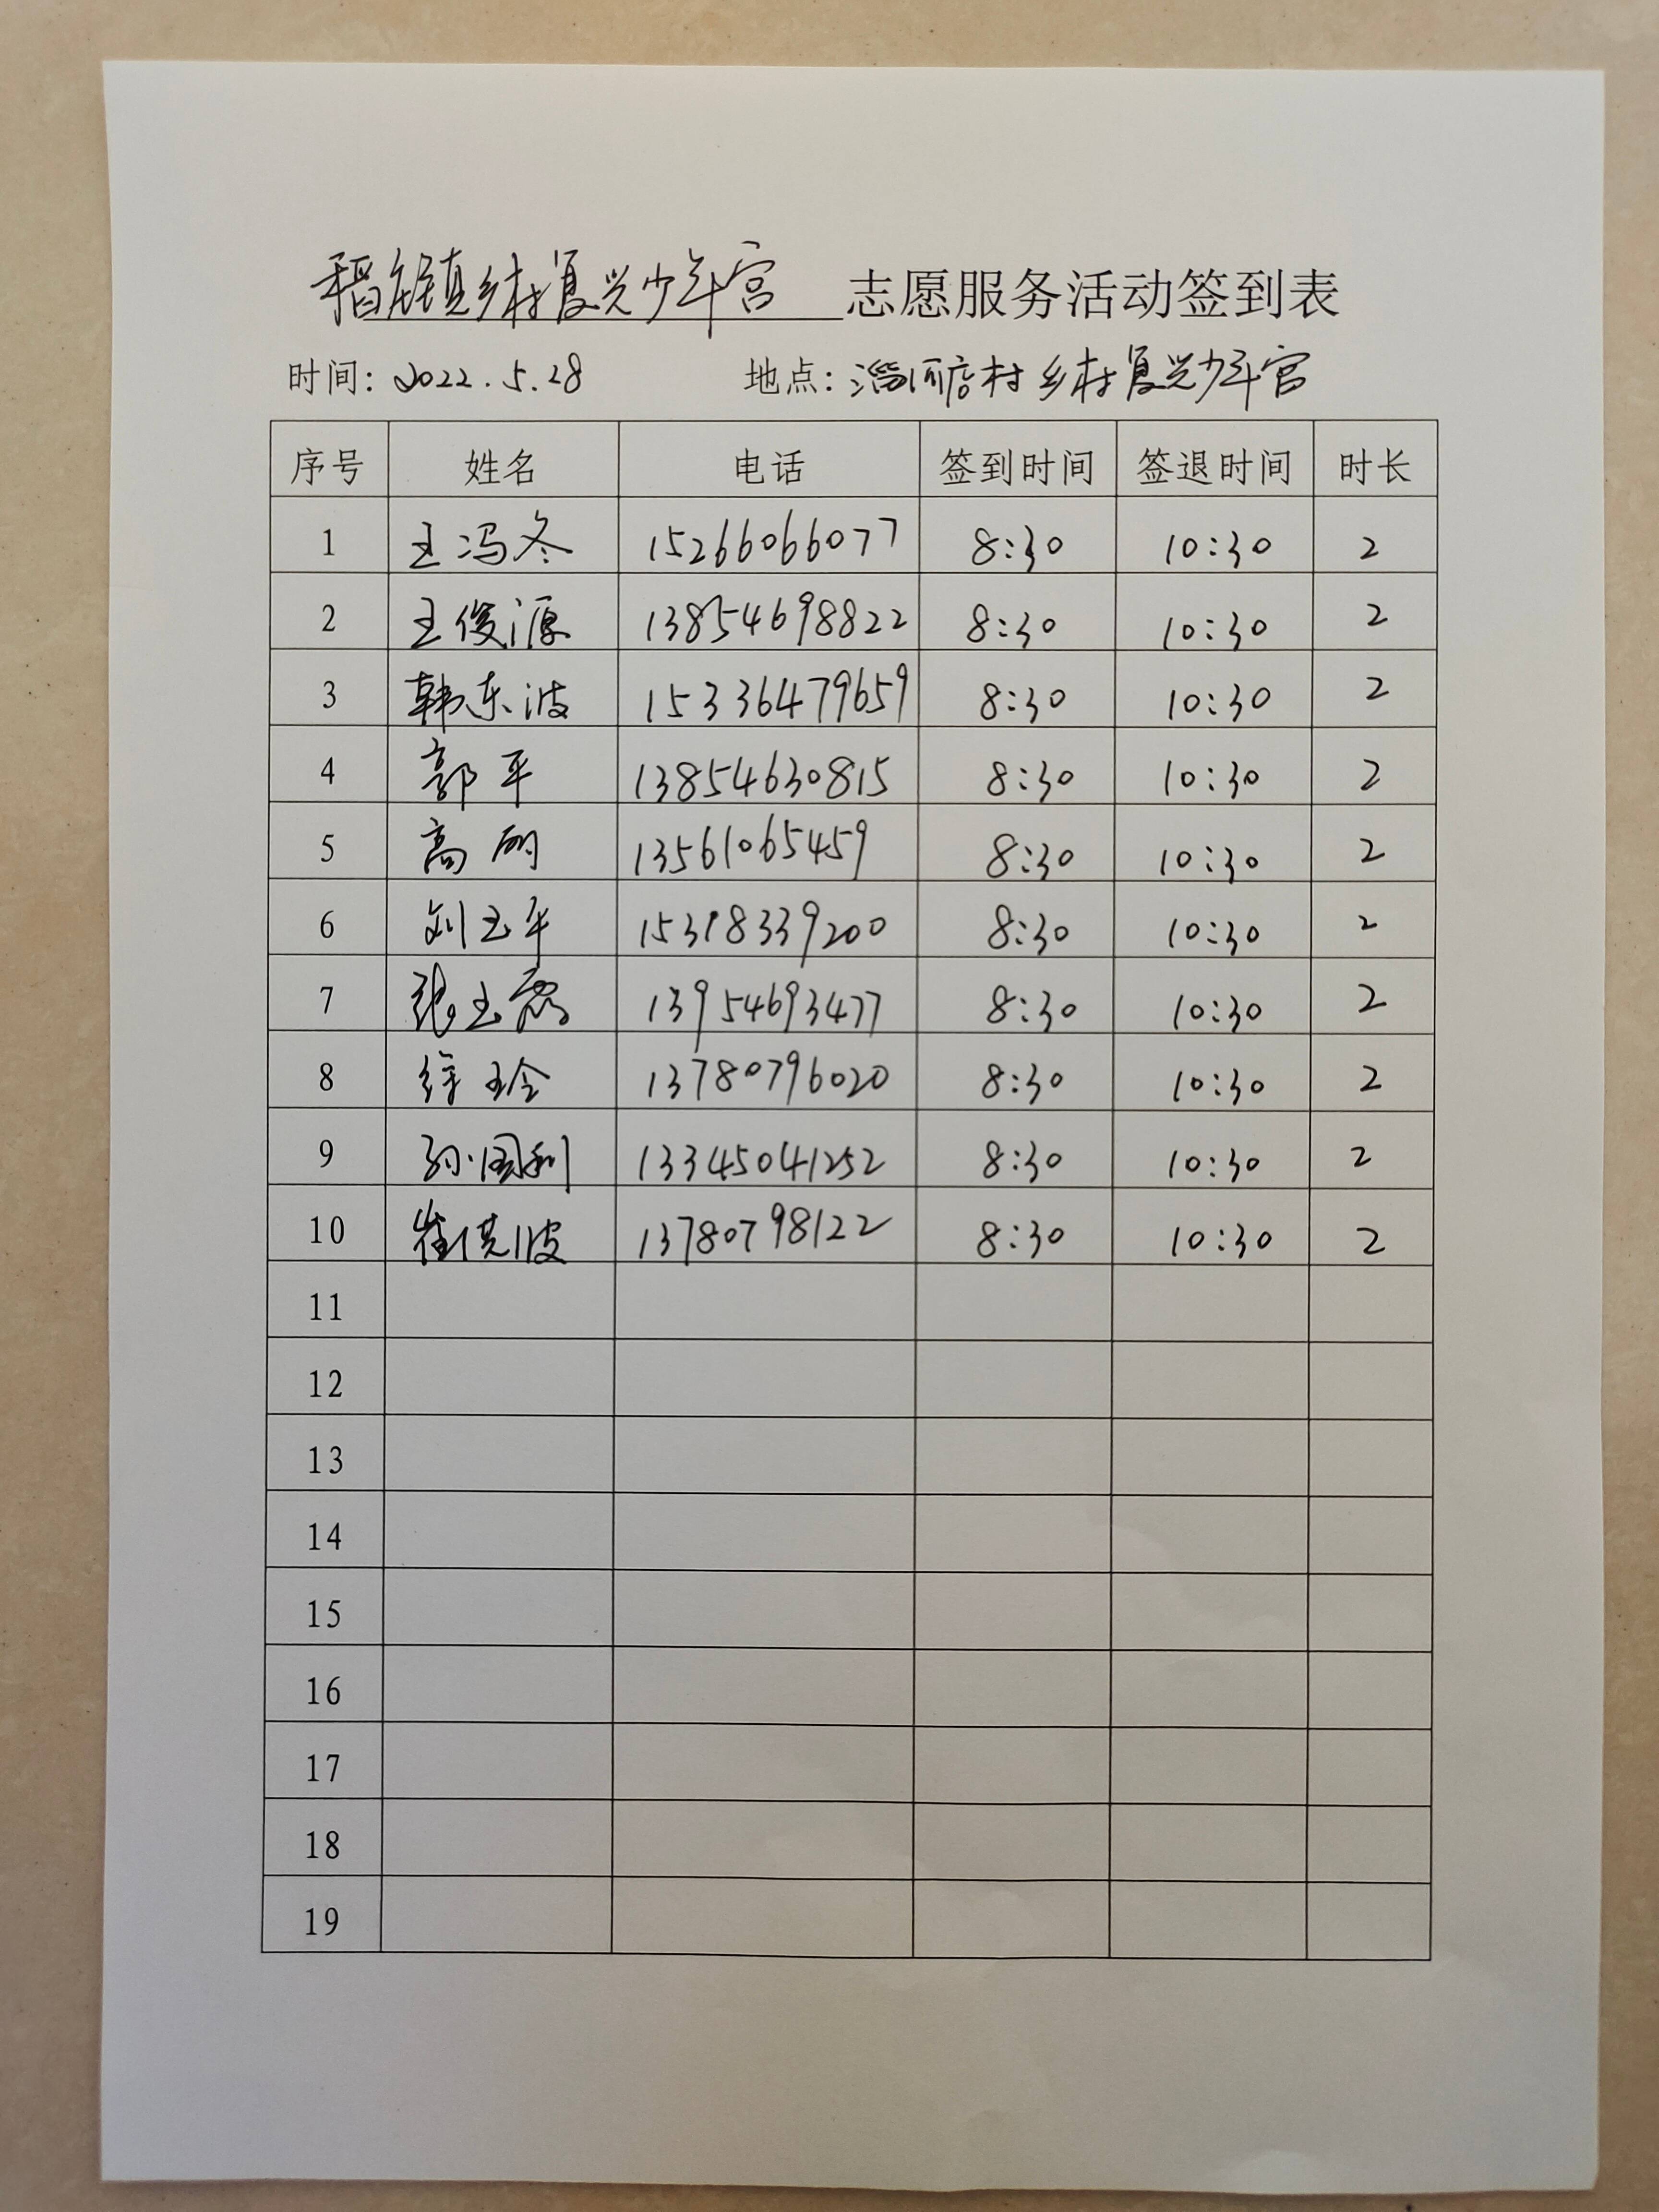 稻庄镇乡村复兴少年宫 志愿服务活动签到表
时间: 2022.5.28 地点: 淄河店村乡村复兴少年宫
序号 姓名 电话 签到时间 签退时间 时长
1 王冯冬 15266066077 8:30 10:30 2
2 王俊源 13854698822 8:30 10:30 2
3 韩东波 15336479659 8:30 10:30 2
4 郭平 13854630815 8:30 10:30 2
5 高 13561065459 8:30 10:30 2
6 刘玉平 15318339200 8:30 10:30 2
7 张玉霞 13954693477 8:30 10:30 2
8 徐玲 13780796020 8:30 10:30 2
9 孙国利 13345041252 8:30 10:30 2
10 崔洪波 13780798122 8:30 10:30 2
11
12
13
14
15
16
17
18
19